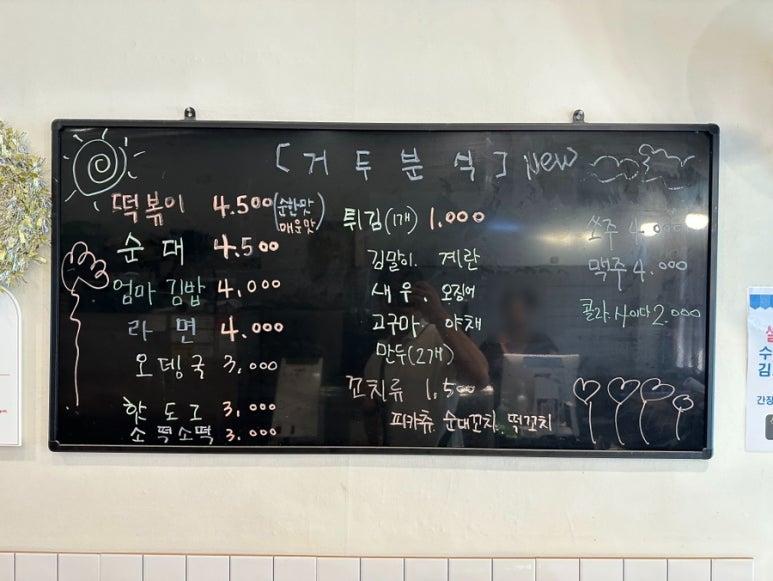 [거두분식] New
떡볶이 4.500 (순한맛
매운맛)
순대 4.500
엄마김밥 4,000
라면 4.000
오뎅국 3,000
핫도그 3,000
소떡소떡 3.000
튀김(1개) 1.000
김말이. 계란
새우. 오징어
고구마. 야채
만두(2개)
꼬치류 1,500
피카츄. 순대꼬치. 떡꼬치
쏘주 4.000
맥주 4.000
콜라. 사이다 2.000
수
김
간장